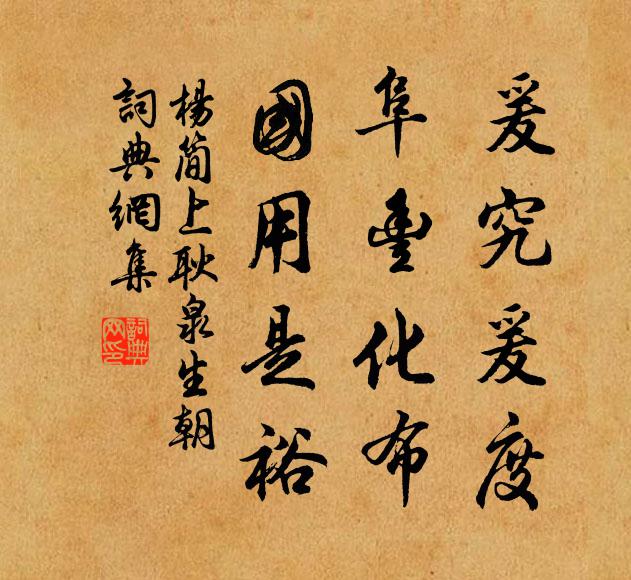 爰究爰度
阜豐化布
國用是裕
楊簡上耿泉生朝
詞典網集
詞典網印